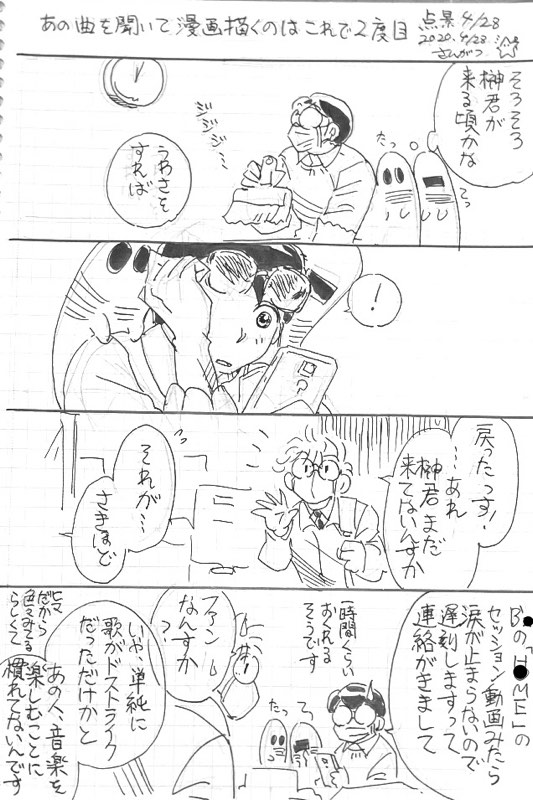 あの曲を聞いて漫画描くのはこれで2度目
点景 4/28
2020.4/28
さんがつ
そろそろ
榊君が
来る頃かな
たっ
ジジジジ〜
うわさを
すれば
!
戻ったっす!
…あれ
榊君まだ
来てないんすか
それが…
さきほど
B●の「H●ME」の
セッション動画みたら
涙が止まらないので
遅刻しますって
連絡がきまして
一時間くらい
おくれる
そうです
たっ
て
ファン
なんすか
?
いや、単純に
歌がドストライク
だっただけかと
あの人、音楽を
楽しむことに
慣れてないんです
ヒマ
だから
色々みてる
らしくて